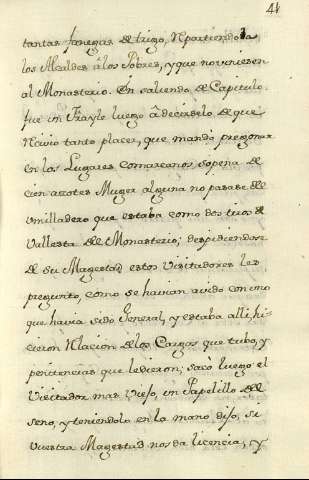 41
tantas fanegas de trigo, Repartiendola
los Alcaldes á los Pobres, y que no viniesen
al Monasterio. En saliendo de Capitulo
fue un Frayle luego á decirselo de que
Recivio tanto placer, que mandó pregonar
en los Lugares comarcanos sopena de
cien azotes Muger alguna no pasase del
umilladero que estaba como dos tiros de
vallesta del Monasterio; despidiendose
de Su Magestad estos Visitadores les
pregunto, como se havian avido con uno
que havia sido General, y estaba alli, hi-
cieron Relacion de los Cargos que tubo, y
penitencias que le dieron; sacó luego el
Visitador mas viejo, un Papelillo del
seno, y teniendolo en la mano dijo, si
vuestra Magestad nos da licencia, y